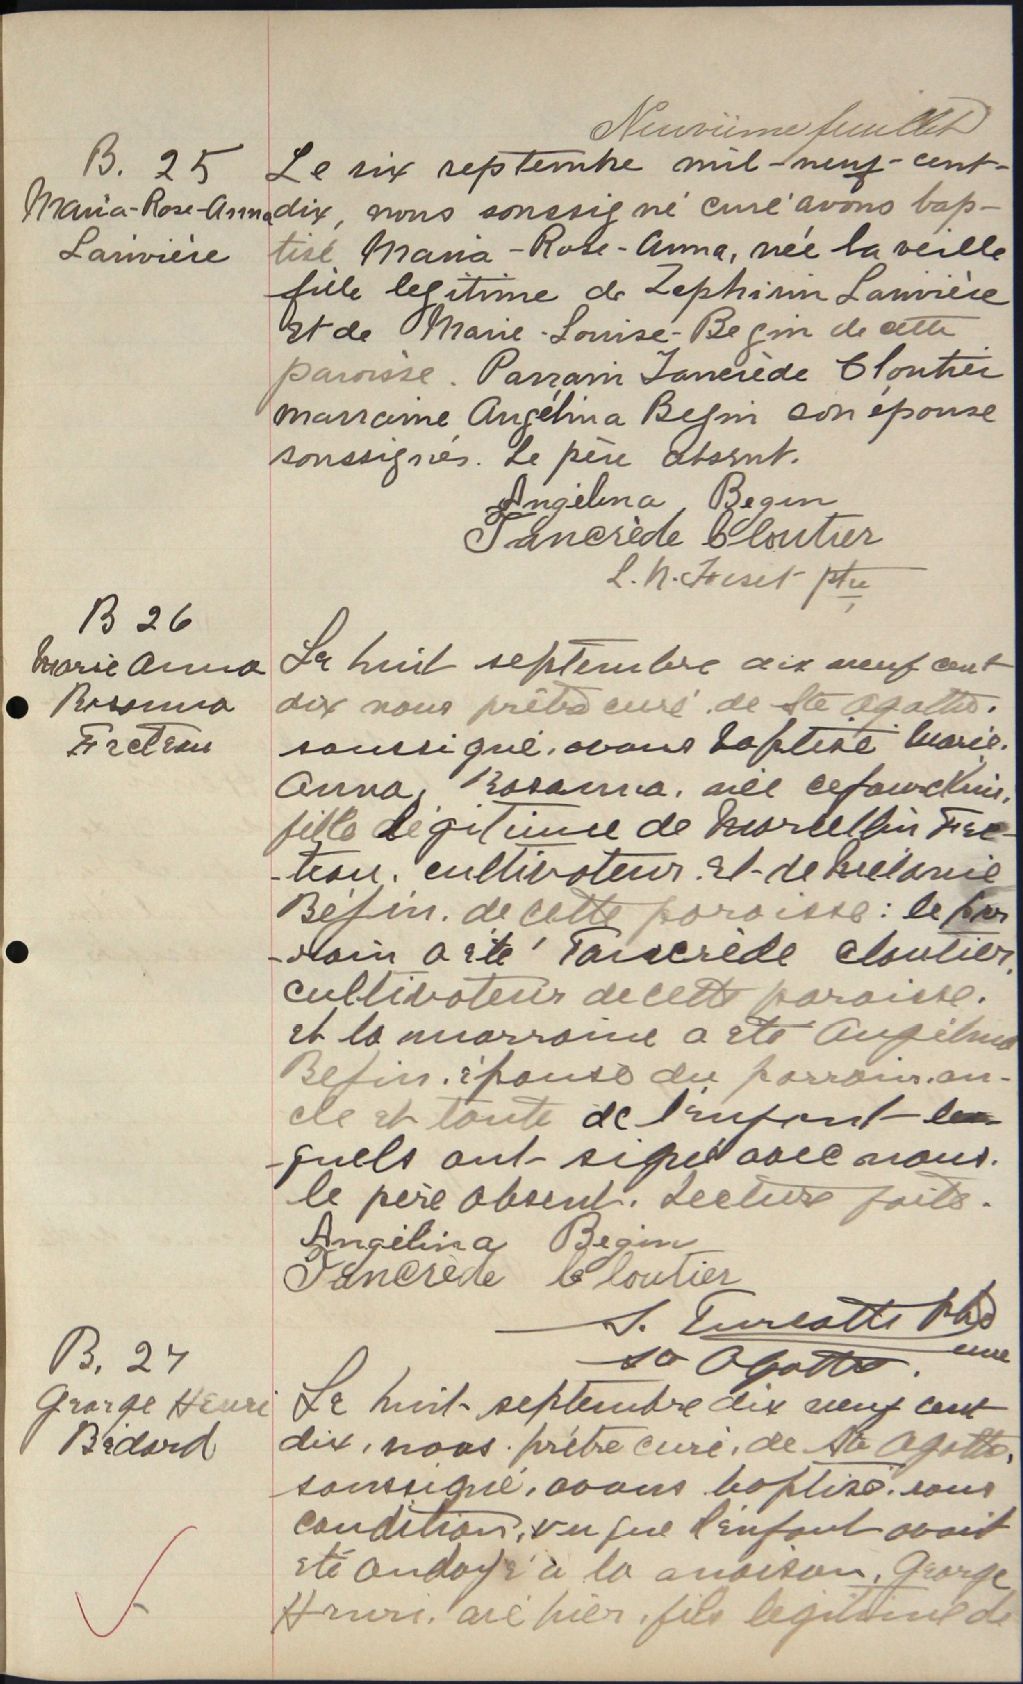 Neuvième feuillet
B. 25
Maria-Rose-Anna
Larivière
Le six septembre mil-neuf-cent-
dix, nous soussigné curé avons bap-
tisé Maria-Rose-Anna, née la veille
fille legitime de Zephirin Larivière
et de Marie-Louise-Begin de cette
paroisse. Parrain Tancrède Cloutier
marraine Angélina Begin son épouse
soussignés. Le père absent.
Angélina Begin
Tancrède Cloutier
L. N. Fiset ptre
B 26
Marie Anna
Rosanna
Frcteau
Le huit septembre dix neuf cent
dix nous prêtre curé de Ste Agathe.
soussigné, avons baptisé Marie.
Anna, Rosanna, née ce jourd'hui,
fille légitime de Marcellin Frc-
-teau, cultivateur et de Mélanie
Bégin, de cette paroisse: le par
-rain a été Tancrède Cloutier,
cultivateur de cette paroisse.
et la marraine a été Angélina
Begin, épouse du parrain, on-
cle et tante de l'enfant les-
-quels ont signé avec nous.
le père absent. Lecture faite.
Angélina Begin
Tancrède Cloutier
Turcotte Ptre
curé
Ste Agathe.
B. 27
George Henri
Bédard
Le huit septembre dix neuf cent
dix, nous prêtre curé, de Ste Agathe,
soussigné, avons baptisé, sous
condition, vu que l'enfant avait
été ondoyé à la maison, George
Henri, né hier, fils legitime de